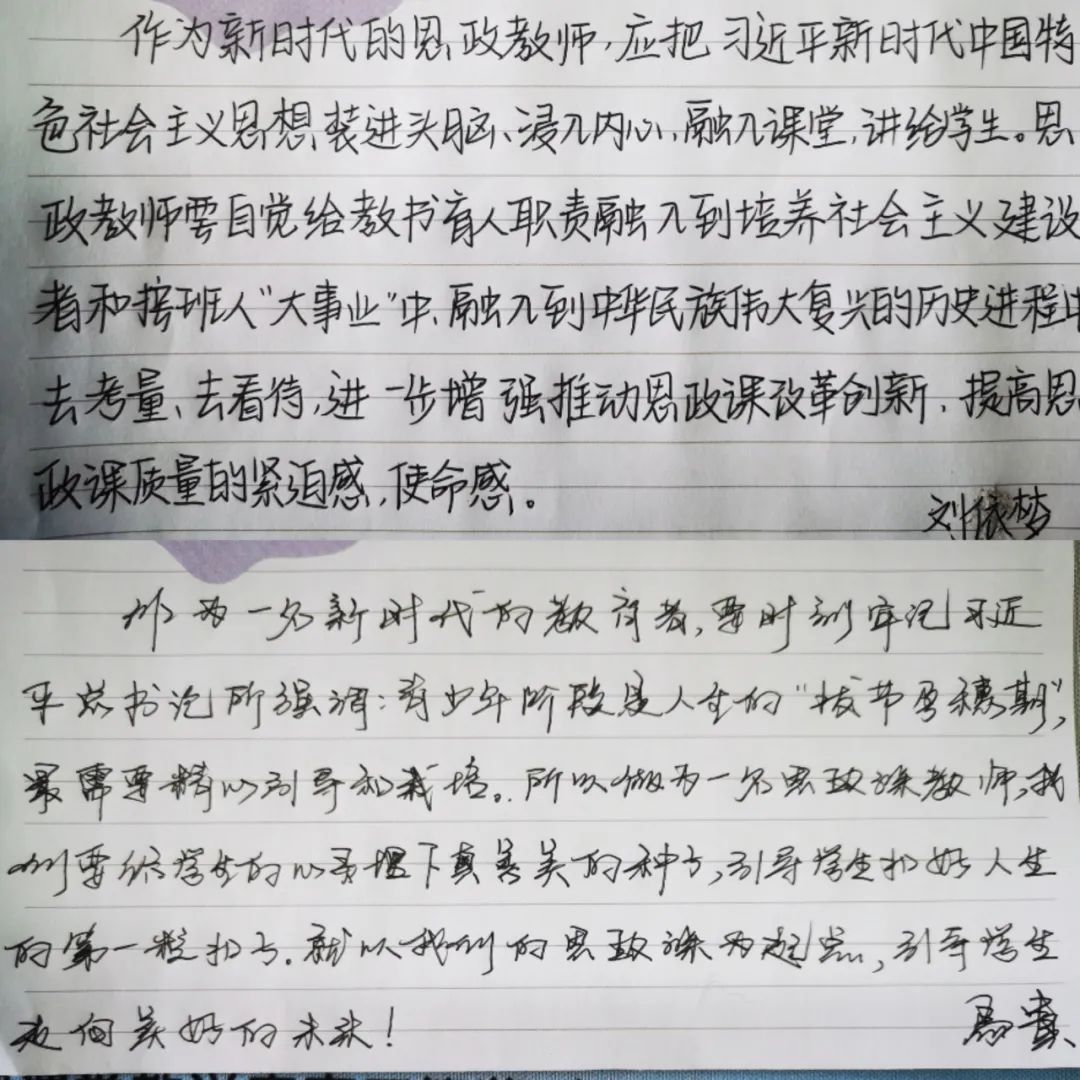 作为新时代的思政教师,应把习近平新时代中国特
色社会主义思想装进头脑、浸入内心,融入课堂,讲给学生。思
政教师要自觉给教书育人职责融入到培养社会主义建设
者和接班人“大事业”中、融入到中华民族伟大复兴的历史进程中
去考量、去看待,进一步增强推动思政课改革创新、提高思
政课质量的紧迫感,使命感。
刘依梦
作为一名新时代的教育者,要时刻牢记习近
平总书记所强调:青少年阶段是人生的“拔节孕穗期”,
最需要精心引导和栽培。所以做为一名思政课教师,我
们要给学生的心灵埋下真善美的种子,引导学生扣好人生
的第一粒扣子。就以我们的思政课为起点,引导学生
走向美好的未来!